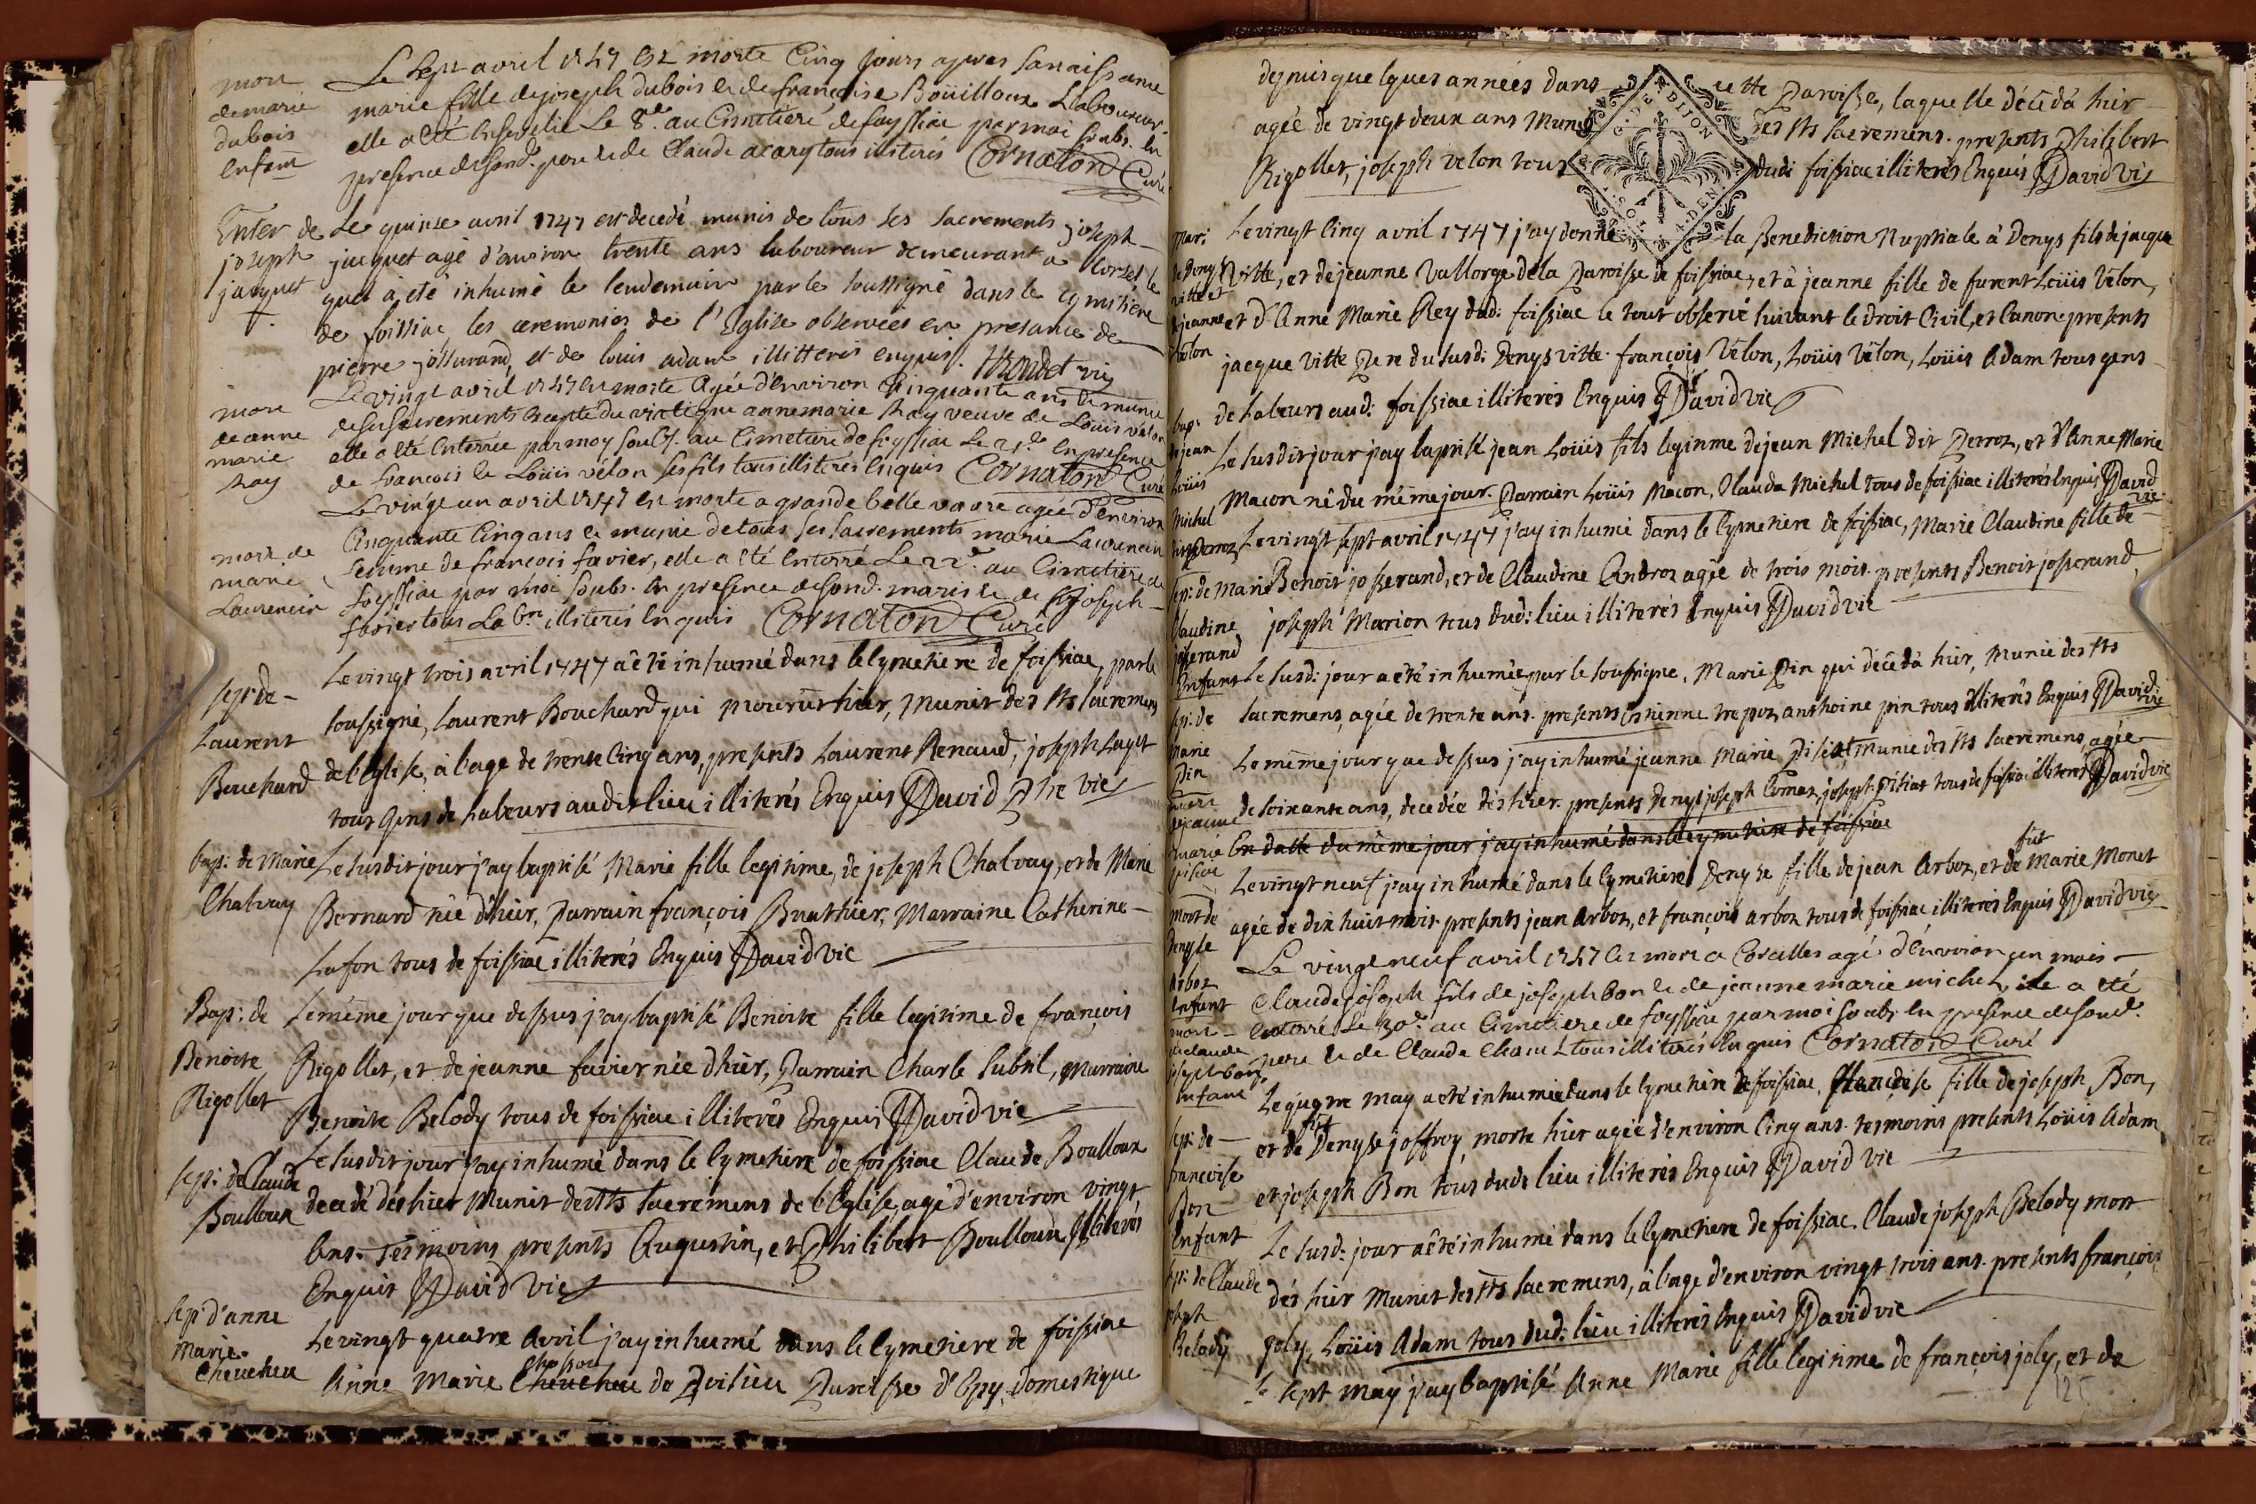 mort
de marie
dubois
enfant
Le sept avril 1747 est morte Cinq jours apres sa naissance
marie fille de joseph dubois et de françoise Boüilloux Laboureur.
elle a été Ensevelie Le 8e. au Cimetiere de foyssiac par moi soubs. en
presence desond. pere et de Claude acary tous illiterés Cornaton Curé
Enter de
joseph
jacquet
Le quinze avril 1747 est decedé munis de tous les sacrements joseph
jacquet agé d'environ trente ans laboureur demeurant a le
quel à eté inhumé le lendemain par le soussigné dans le cymitiere
de foissiac les ceremonies de l'Eglise observées en presance de
pierre josserand, et de louis adam illitteres enquis. vic
mort
de anne
marie
Ray
Le vingt avril 1747 est morte agée d'environ Cinquante ans et munie
de ses sacrements excepté du viatique anne marie Ray veuve de Loüis velon
elle a été Enterrée par moy soubs. au Cimetiere de foyssiac Le 21e. En presence
de francois et Loüis vélon ses fils tous illiterés Enquis Cornaton Curé
mort de
marie
Laurencin
Le vingt un avril 1747 est morte a grande belle vavre agée d'environ
Cinquante Cinq ans et munie de tous ses sacrements marie Laurencin
femme de francois favier, elle a été Enterré Le 22e. au Cimetiere de
foyssiac par moi soubs. en presence desond. maris et de joseph
favier tous Lab.rs illiterés Enquis Cornaton Curé
sep: de
Laurent
Bouchard
Le vingt trois avril 1747 a été inhumé dans le Cymetiere de foissiac, par le
soussigné, Laurent Bouchard qui mourut hier, Munit des Sts sacremens
de l'Eglise, à l'age de trente Cinq ans, presents Laurent Renaud, joseph
tous gens de Labeurs audit lieu illiterés Enquis David Ptre vic
bap: de Marie
Chalvay
Le susdit jour j'ay baptisé Marie fille legitime, de joseph Chalvay, et de Marie
Bernard née d'hier, Parrain françois Buathier, Marraine Catherine
Lafon tous de foissiac illiterés Enquis David vic
Bap: de
Benoite
Rigollet
Le méme jour que dessus j'ay baptisé Benoite fille legitime de françois
Rigollet, et de jeanne favier née d'hier, Parrain Charle Subtil, Marraine
Benoite Belody tous de foissiac illiterés Enquis David vic
sep: de Claude
Boulloux
Le susdit jour j'ay inhumé dans le Cymetiere de foissiac Claude Boulloux
decedé dés hier Munit des Sts sacremens de l'Eglise, agé d'environ vingt
ans. Tesmoins presents Augustin, et Philibert Boulloux Illiterés
Enquis David vic
sep d'anne
Marie
Cheucheu
Le vingt quatre Avril j'ay inhumé dans le Cymetiere de foissiac
Anne Marie Cheucheu de Poilieu Paroisse d'Epy, domestique
depuis quelques années dans cette Paroisse, laquelle déceda hier
agée de vingt deux ans Munie des Sts sacremens. presents Philibert
Rigollet, joseph velon tous dudi foissiac illiterés Enquis David vic
mari:
de Denys
vitte et
de jeanne
vélon
Le vingt Cinq avril 1747 j'ay donné la Benediction Nuptiale à Denys fils de jacque
vitte, et de jeanne Vallorge de la Paroisse de foissiac, et à jeanne fille de furent Loüis vélon,
et d'Anne Marie Rey dud: foissiac le tout observé suivant le droit Civil, et Canon: presents
jacque vitte Pere du susd: Denys vitte. françois Vélon, Loüis Vélon, Loüis Adam tous gens
de Labeurs aud: foissiac illiterés Enquis David vic
bap:
de jean
Loüis
Michel
dit Perroz
Le susdit jour j'ay baptisé jean Loüis fils legitime de jean Michel dit Perroz, et d'Anne Marie
Macon né du méme jour. Parrain Loüis Macon, Clauda Michel tous de foissiac illiterés Enquis David vic
sep: de Marie
Claudine
josserand
Enfant
Le vingt sept avril 1747 j'ay inhumé dans le Cymetiere de foissiac, Marie Claudine fille de
Benoit josserand, et de Claudine Andros agée de trois mois. presents Benoit josserand,
joseph Marion tous dud: lieu illiterés Enquis David vic
sep: de
Marie
Pin
Le susd: jour a été inhumée par le soussigné, Marie Pin qui déceda hier, Munie des Sts
sacremens, agée de trente ans. presents Estienne trepoz, anthoine pin tous illiterés Enquis David vic
mort
de jeanne
marie
pisiat
Le méme jour que dessus j'ay inhumé jeanne Marie Pisiat, munie des Sts sacremens, agée
de soixante ans, decedée dés hier. presents Denys joseph Comaz, joseph Pisiat tous de foissiac illiterés David vic
En datte du méme jour j'ay inhumé dans le Cymetiere de foissiac
mort de
Denyse
Arboz
Enfant
Le vingt neuf j'ay inhumé dans le Cymetiere Denyse fille de jean Arboz, et de fut Marie Monet
agée de dix huit mois. presents jean Arboz, et françois arboz tous de foissiac illiterés Enquis David vic
mort
de claude
joseph bon
Enfant
Le vingt neuf avril 1747 est mort a Corcelles agé d'Environ un mois
Claude joseph fils de joseph bon et de jeanne marie michel, ile a été
Enterré Le 30e. au Cimetiere de foyssiac par moi soubs. en presence desond.
pere et de Claude tous illiterés Enquis Cornaton Curé
sep: de
francoise
Bon
Enfant
Le may a eté inhumée dans le Cymetiere de foissiac, françoise fille de joseph Bon,
et de fut Denyse joffroy, morte hier agée d'environ Cinq ans. tesmoins presents Loüis Adam,
et joseph Bon tous dudi lieu illiterés Enquis David vic
sep: de Claude
joseph
Belody
Le susd: jour a été inhumé dans le Cymetiere de foissiac. Claude joseph Belody mort
dés hier Munit des Sts sacremens, à l'age d'environ vingt trois ans. presents françois
joly, Loüis Adam tous dud: lieu illiterés Enquis David vic
Le sept may j'ay baptisé Anne Marie fille legitime de francois joly, et de
125